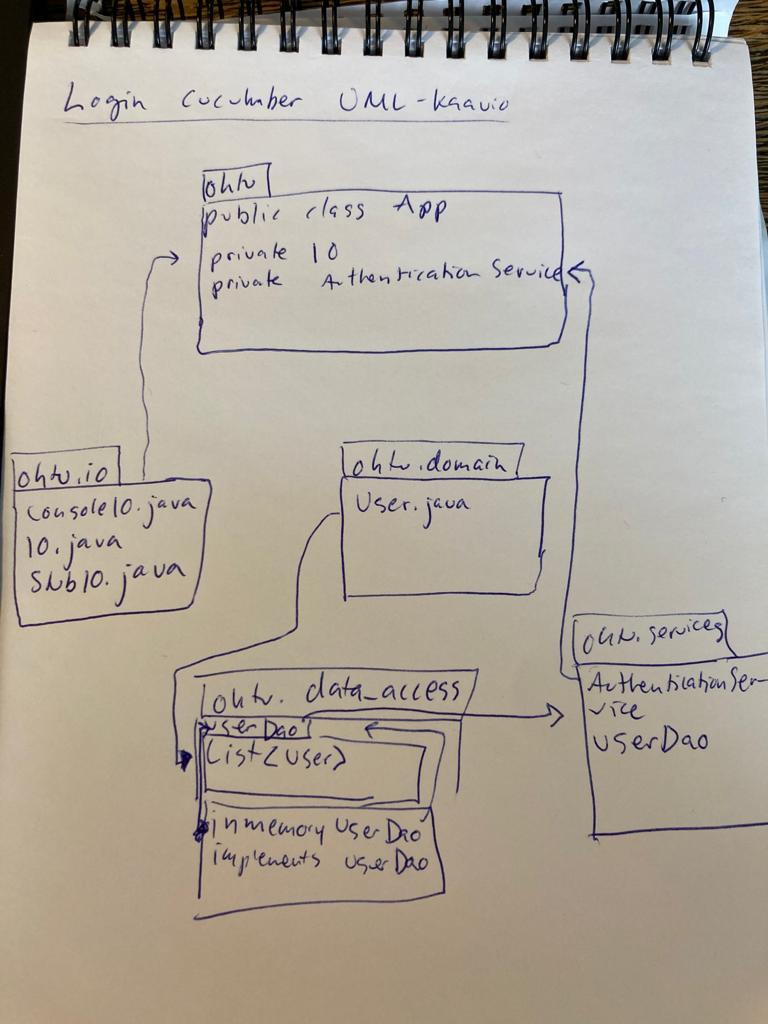 Login Cucumber UML-kaavio
ohtu
public class App
private IO
private Authentication Service
ohtu.io
ConsoleIO.java
IO.java
StubIO.java
ohtu.domain
User.java
ohtu.services
AuthenticationSer-
vice
userDao
ohtu. data_access
userDao
List<User>
inmemory UserDao
implements userDao